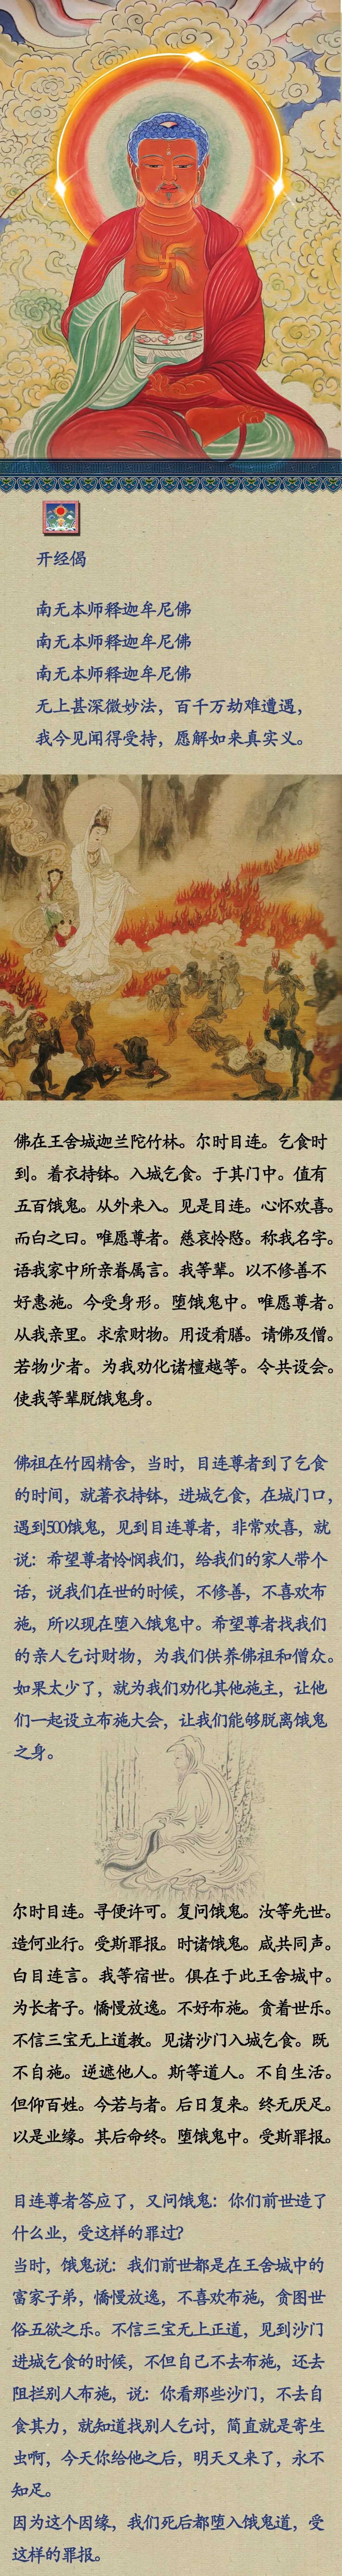 开经偈
南无本师释迦牟尼佛
南无本师释迦牟尼佛
南无本师释迦牟尼佛
无上甚深微妙法，百千万劫难遭遇，
我今见闻得受持，愿解如来真实义。
佛在王舍城迦兰陀竹林。尔时目连。乞食时
到。着衣持钵。入城乞食。于其门中。值有
五百饿鬼。从外来入。见是目连。心怀欢喜。
而白之曰。唯愿尊者。慈哀怜愍。称我名字。
语我家中所亲眷属言。我等辈。以不修善不
好惠施。今受身形。堕饿鬼中。唯愿尊者。
从我亲里。求索财物。用设肴膳。请佛及僧。
若物少者。为我劝化诸檀越等。令共设会。
使我等辈脱饿鬼身。
佛祖在竹园精舍，当时，目连尊者到了乞食
的时间，就著衣持钵，进城乞食，在城门口，
遇到500饿鬼，见到目连尊者，非常欢喜，就
说：希望尊者怜悯我们，给我们的家人带个
话，说我们在世的时候，不修善，不喜欢布
施，所以现在堕入饿鬼中。希望尊者找我们
的亲人乞讨财物，为我们供养佛祖和僧众。
如果太少了，就为我们劝化其他施主，让他
们一起设立布施大会，让我们能够脱离饿鬼
之身。
尔时目连。寻便许可。复问饿鬼。汝等先世。
造何业行。受斯罪报。时诸饿鬼。咸共同声。
白目连言。我等宿世。俱在于此王舍城中。
为长者子。憍慢放逸。不好布施。贪着世乐。
不信三宝无上道教。见诸沙门入城乞食。既
不自施。逆遮他人。斯等道人。不自生活。
但仰百姓。今若与者。后日复来。终无厌足。
以是业缘。其后命终。堕饿鬼中。受斯罪报。
目连尊者答应了，又问饿鬼：你们前世造了
什么业，受这样的罪过？
当时，饿鬼说：我们前世都是在王舍城中的
富家子弟，憍慢放逸，不喜欢布施，贪图世
俗五欲之乐。不信三宝无上正道，见到沙门
进城乞食的时候，不但自己不去布施，还去
阻拦别人布施，说：你看那些沙门，不去自
食其力，就知道找别人乞讨，简直就是寄生
虫啊，今天你给他之后，明天又来了，永不
知足。
因为这个因缘，我们死后都堕入饿鬼道，受
这样的罪报。